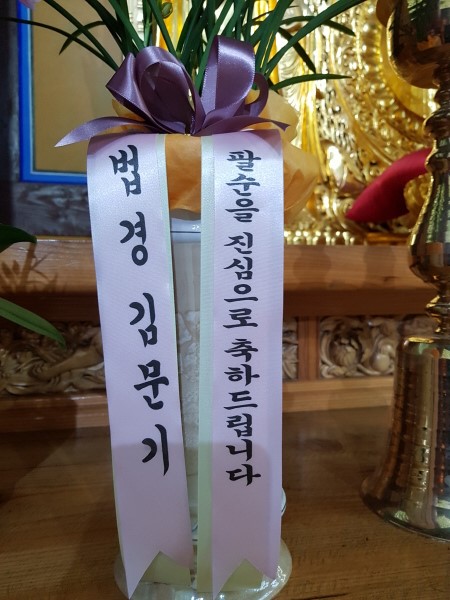 팔순을 진심으로 축하드립니다
법경 김문기